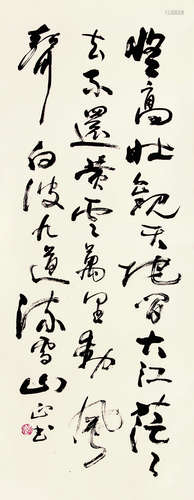 登高壯觀天地間大江茫々
去不還黄雲萬里動風
白波九道流雪山 正書